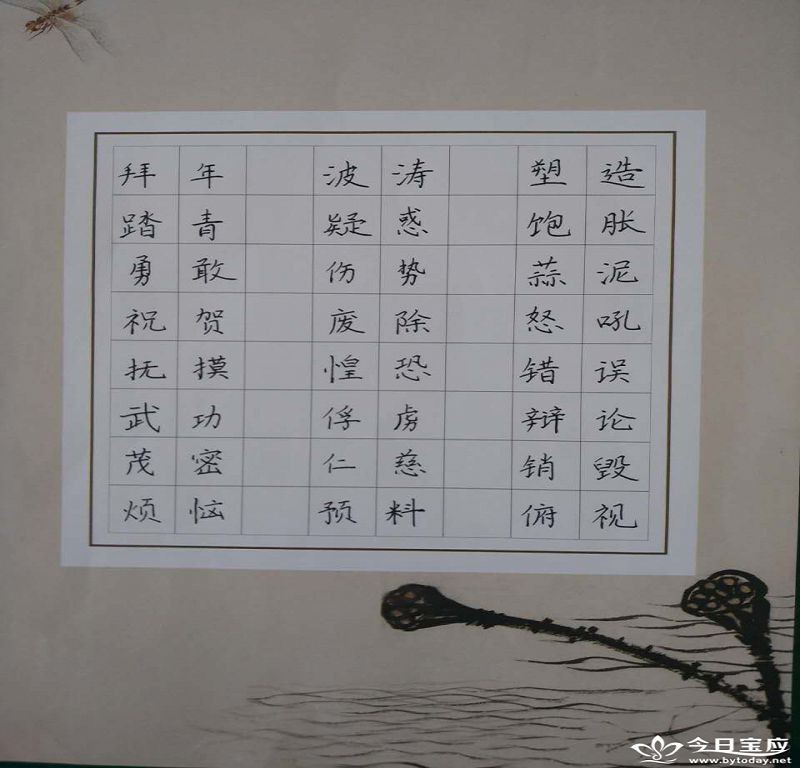 拜年 波涛 塑造
踏青 疑惑 饱胀
勇敢 伤势 蒜泥
祝贺 废除 怒吼
抚摸 惶恐 错误
武功 俘虏 辩论
茂密 仁慈 销毁
烦恼 预料 俯视
今日宝应
www.bytoday.net